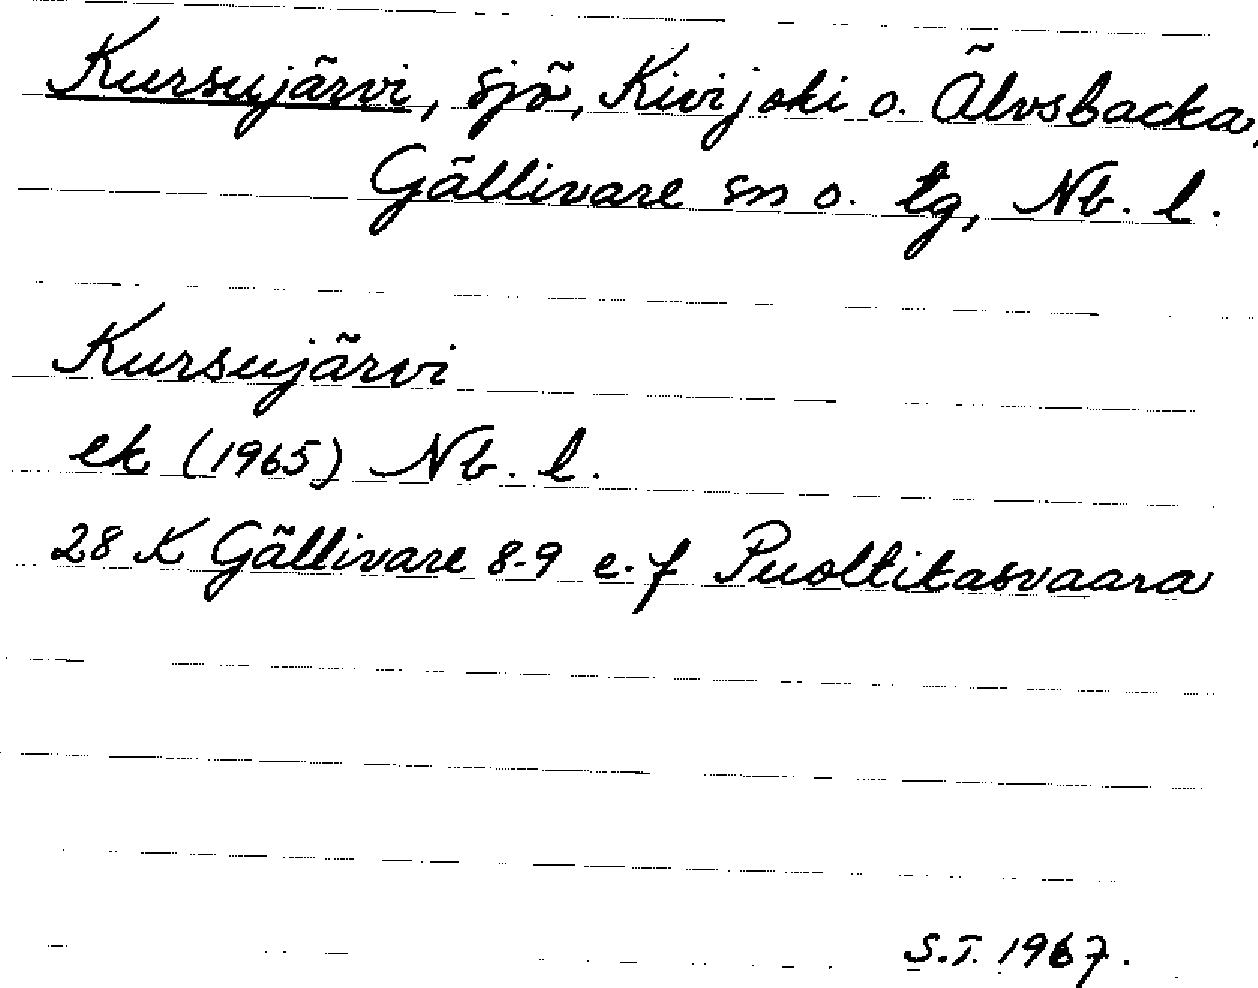 Kursujärvi, sjö, Kivijoki o. Älvsbacka,
Gällivare sn o. tg, Nb. l.
Kursujärvi
ek (1965) Nb. l.
28 K Gällivare 8-9 e.f Puoltikasvaara
S.T. 1967.